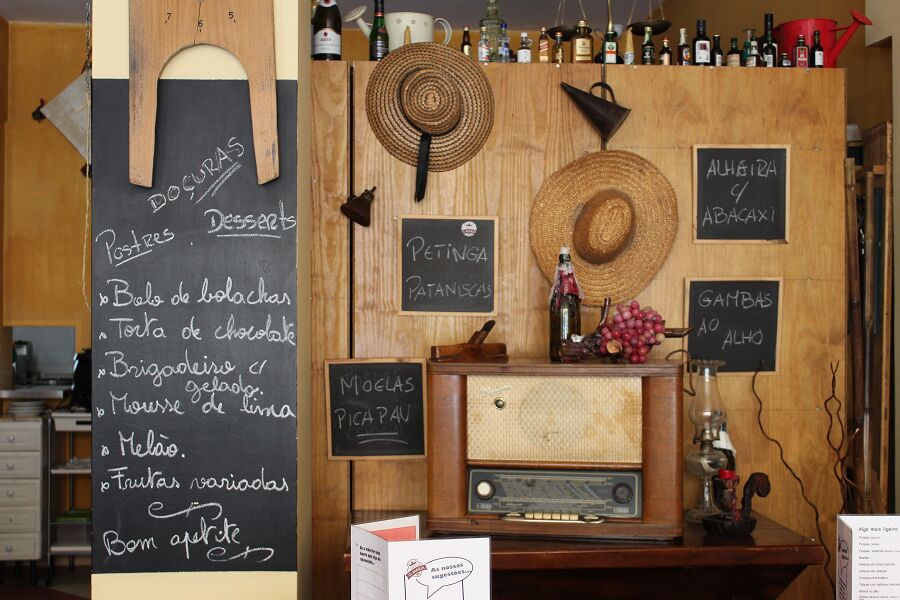 7 6 5
DOÇURAS
Postres . Desserts
Bolo de bolachas
Torta de chocolate
Brigadeiro c/
gelado.
Mousse de lima
Melão.
Frutas variadas
Bom apetite
PETINGA
PATANISCAS
MOELAS
PICAPAU
ALHEIRA
C/
ABACAXI
GAMBAS
AO
ALHO
As nossas
sugestões...
Algo mais ligeiro